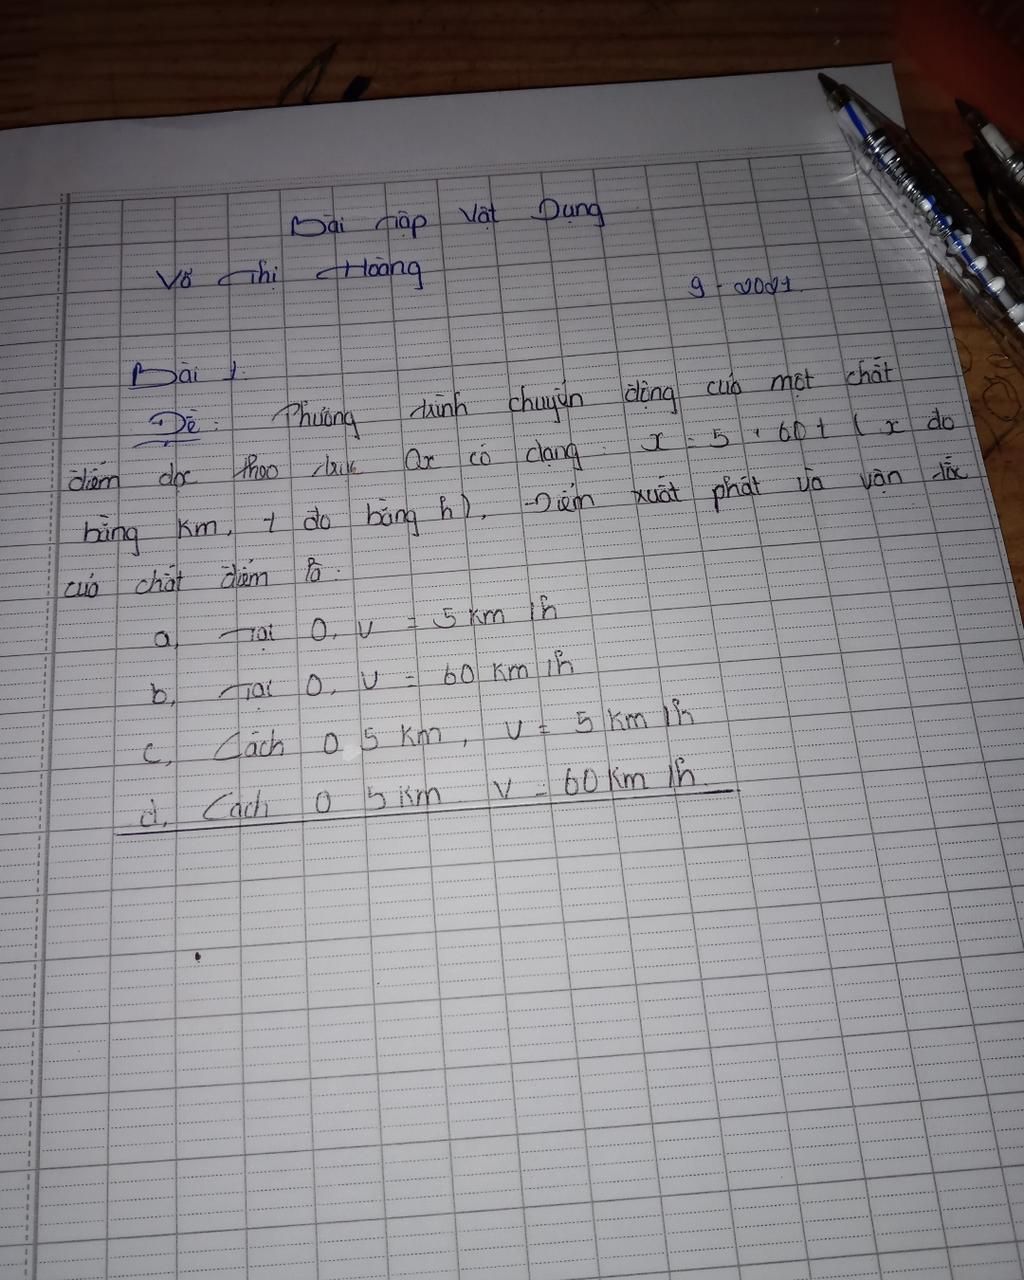 Bài Tập Vật Dụng
Võ Thị Hoàng
9-2021.
Bài 1.
Đề: Phương trình chuyển động của một chất
điểm dọc theo trục Ox có dạng: x = 5 + 60t (x đo
bằng km, t đo bằng h). Điểm xuất phát và vận tốc
của chất điểm là:
a, Tại 0, v = 5 km/h
b, Tại 0, v = 60 km/h
c, Cách 0 5 km, v = 5 km/h
d, Cách 0 5 km v = 60 km/h